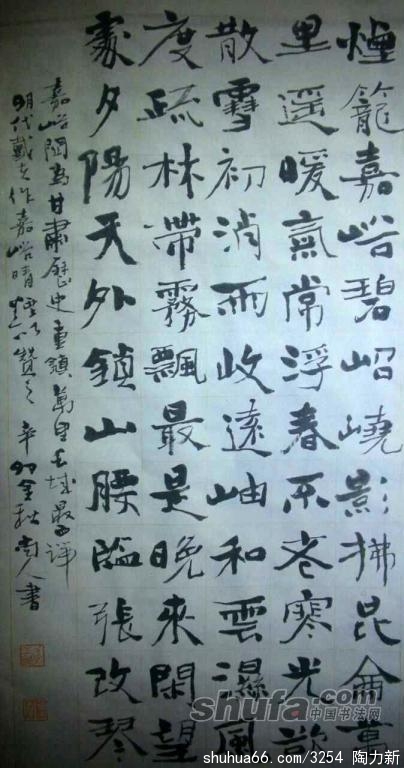 煙籠嘉峪碧岧嶢影拂昆侖萬
里遥暖氣常浮春不老寒光欲
散雪初消雨收遠岫和雲濕風
度疏林帶霧飄最是晚來閑望
處夕陽天外鎮山腰臨張改琴
嘉峪關為甘肅歷史重鎮萬里長城最西
明代戴作嘉峪晴煙以贊之辛卯金秋人書
shufa.com
中国书法网
shuhua66.com/3254 陶力新